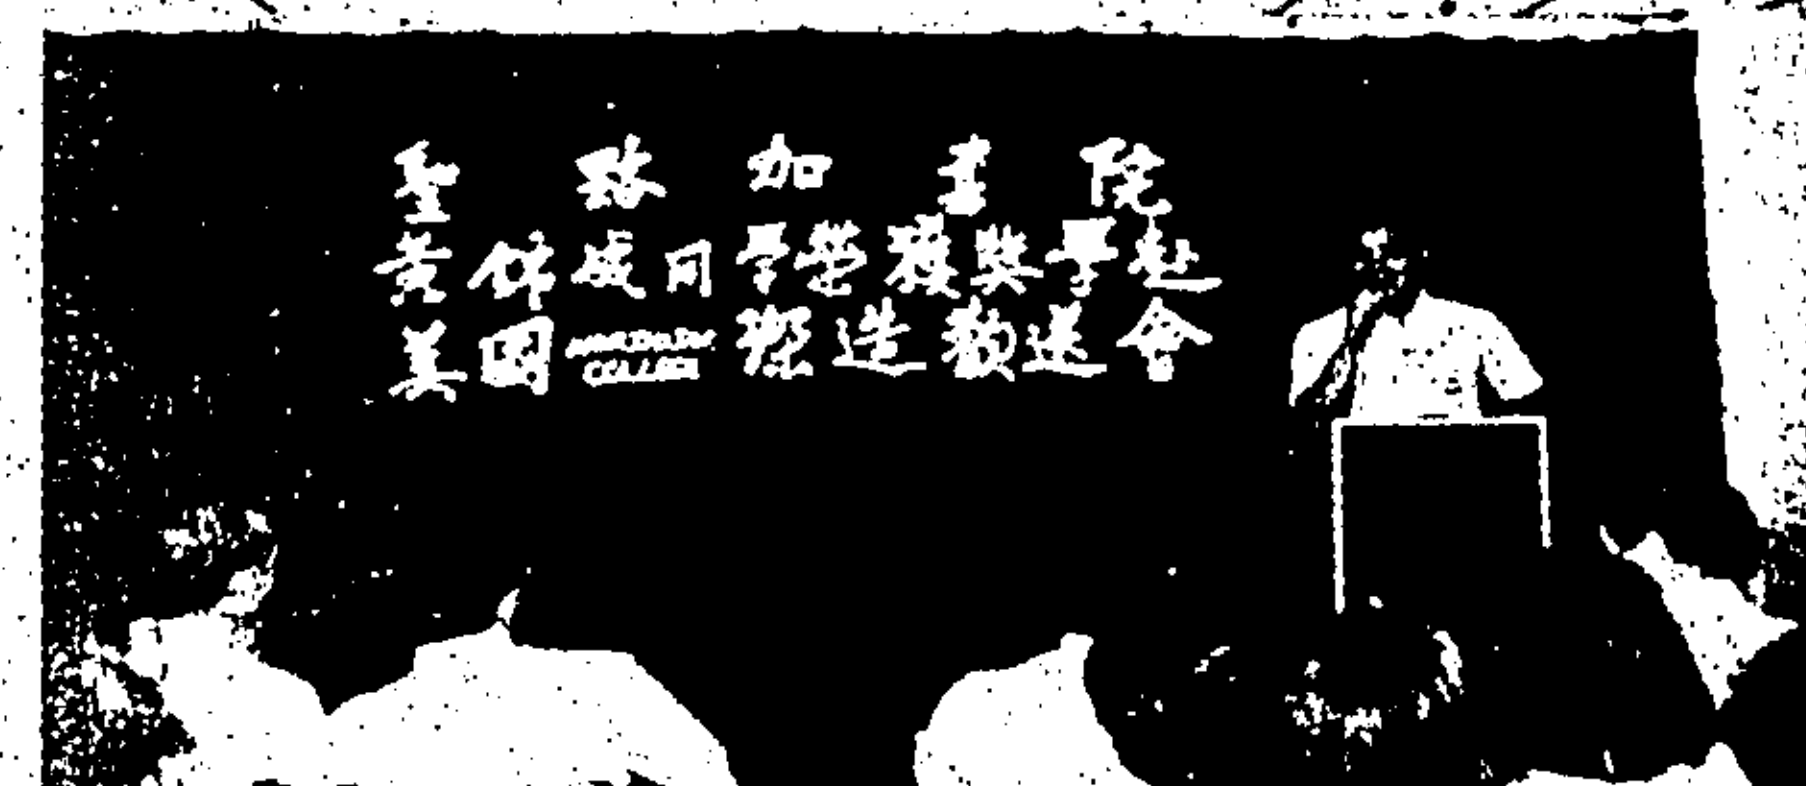 聖路加書院
黃錦成同學榮獲獎學赴
美國 COLLEGE 深造歡送會